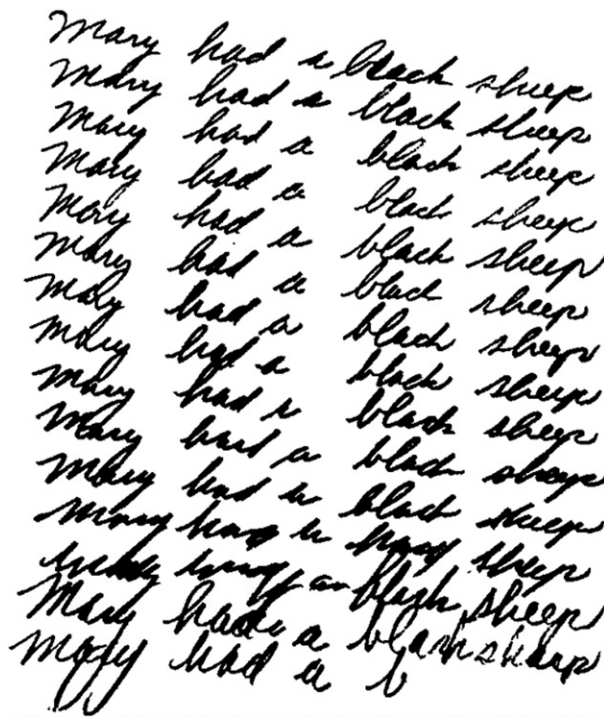 Mary had a black sheep
Mary had a black sheep
Mary had a black sheep
Mary had a black sheep
Mary had a black sheep
Mary had a black sheep
Mary had a black sheep
Mary had a black sheep
Mary had a black sheep
Mary had a black sheep
Mary had a black sheep
Mary had a sheep
black sheep
Mary had a black sharp
Mary had a b